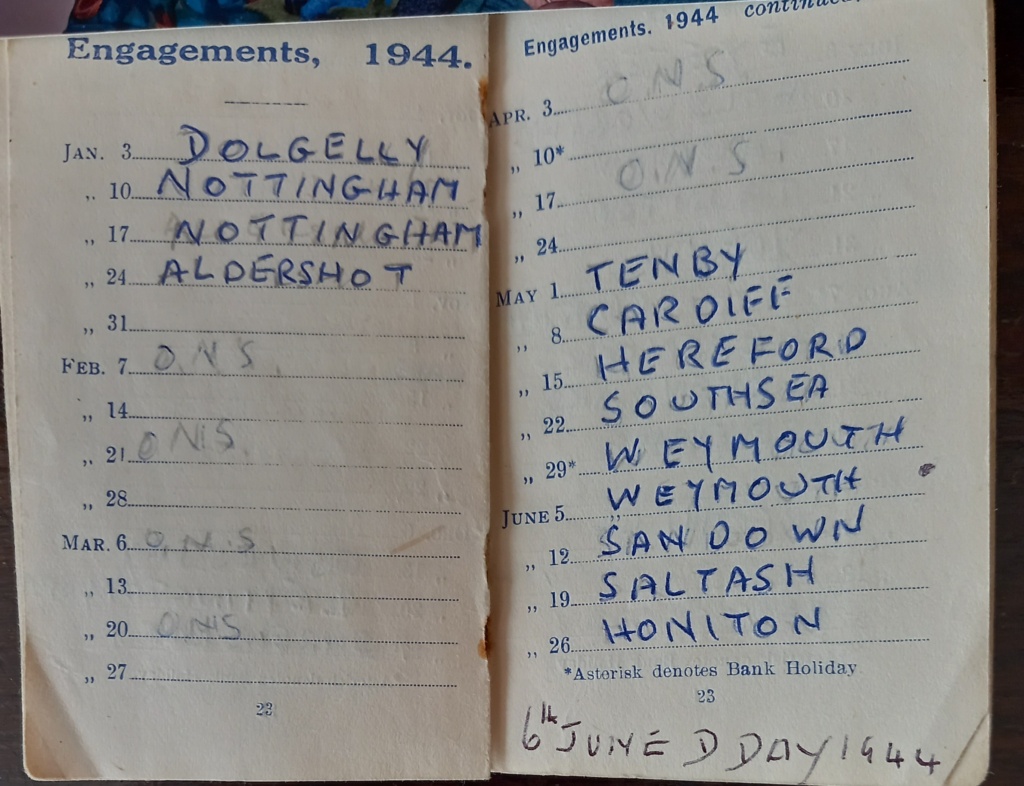 Engagements, 1944.
JAN. 3 DOLGELLY
„ 10 NOTTINGHAM
„ 17 NOTTINGHAM
„ 24 ALDERSHOT
„ 31
FEB. 7 O.N.S.
„ 14
„ 21 O.N.S.
„ 28
MAR. 6 O.N.S.
„ 13
„ 20 O.N.S.
„ 27
23
Engagements. 1944 continued
APR. 3 O N S
„ 10*
„ 17 O.N.S.
„ 24
MAY 1 TENBY
„ 8 CARDIFF
„ 15 HEREFORD
„ 22 SOUTHSEA
„ 29* WEYMOUTH
JUNE 5 WEYMOUTH
„ 12 SANDOWN
„ 19 SALTASH
„ 26 HONITON
*Asterisk denotes Bank Holiday
23
6th JUNE D DAY 1944